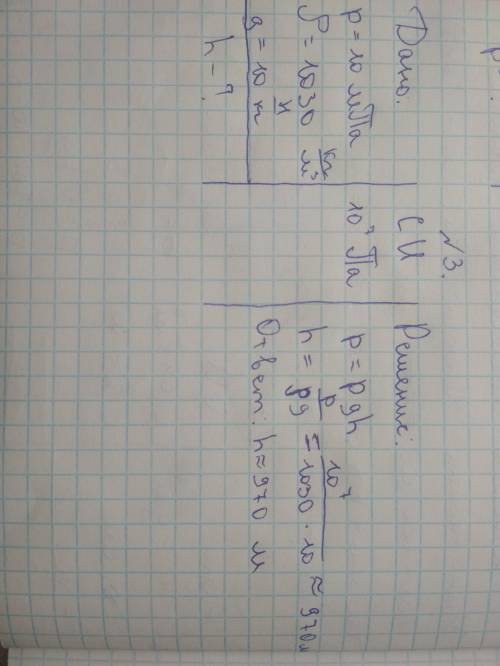 р
№3.
Дано:
р = 10 мПа
ρ = 1030 кг/м³
g = 10 н/кг
h - ?
СИ
10⁷ Па
Решение:
р = ρgh
h = р/ρg = 10⁷/1030 · 10 ≈ 970м
Ответ: h ≈ 970 м